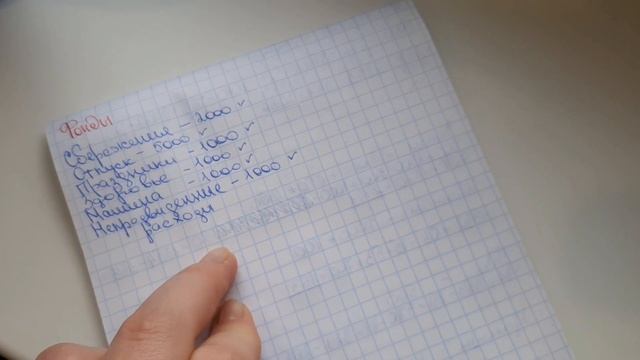 Фонды
Сбережения - 2000 ✓
Отпуск - 5000 ✓
Праздники - 1000 ✓
Здоровье - 1000 ✓
Машина - 1000 ✓
Непредвиденные - 1000 ✓
расходы